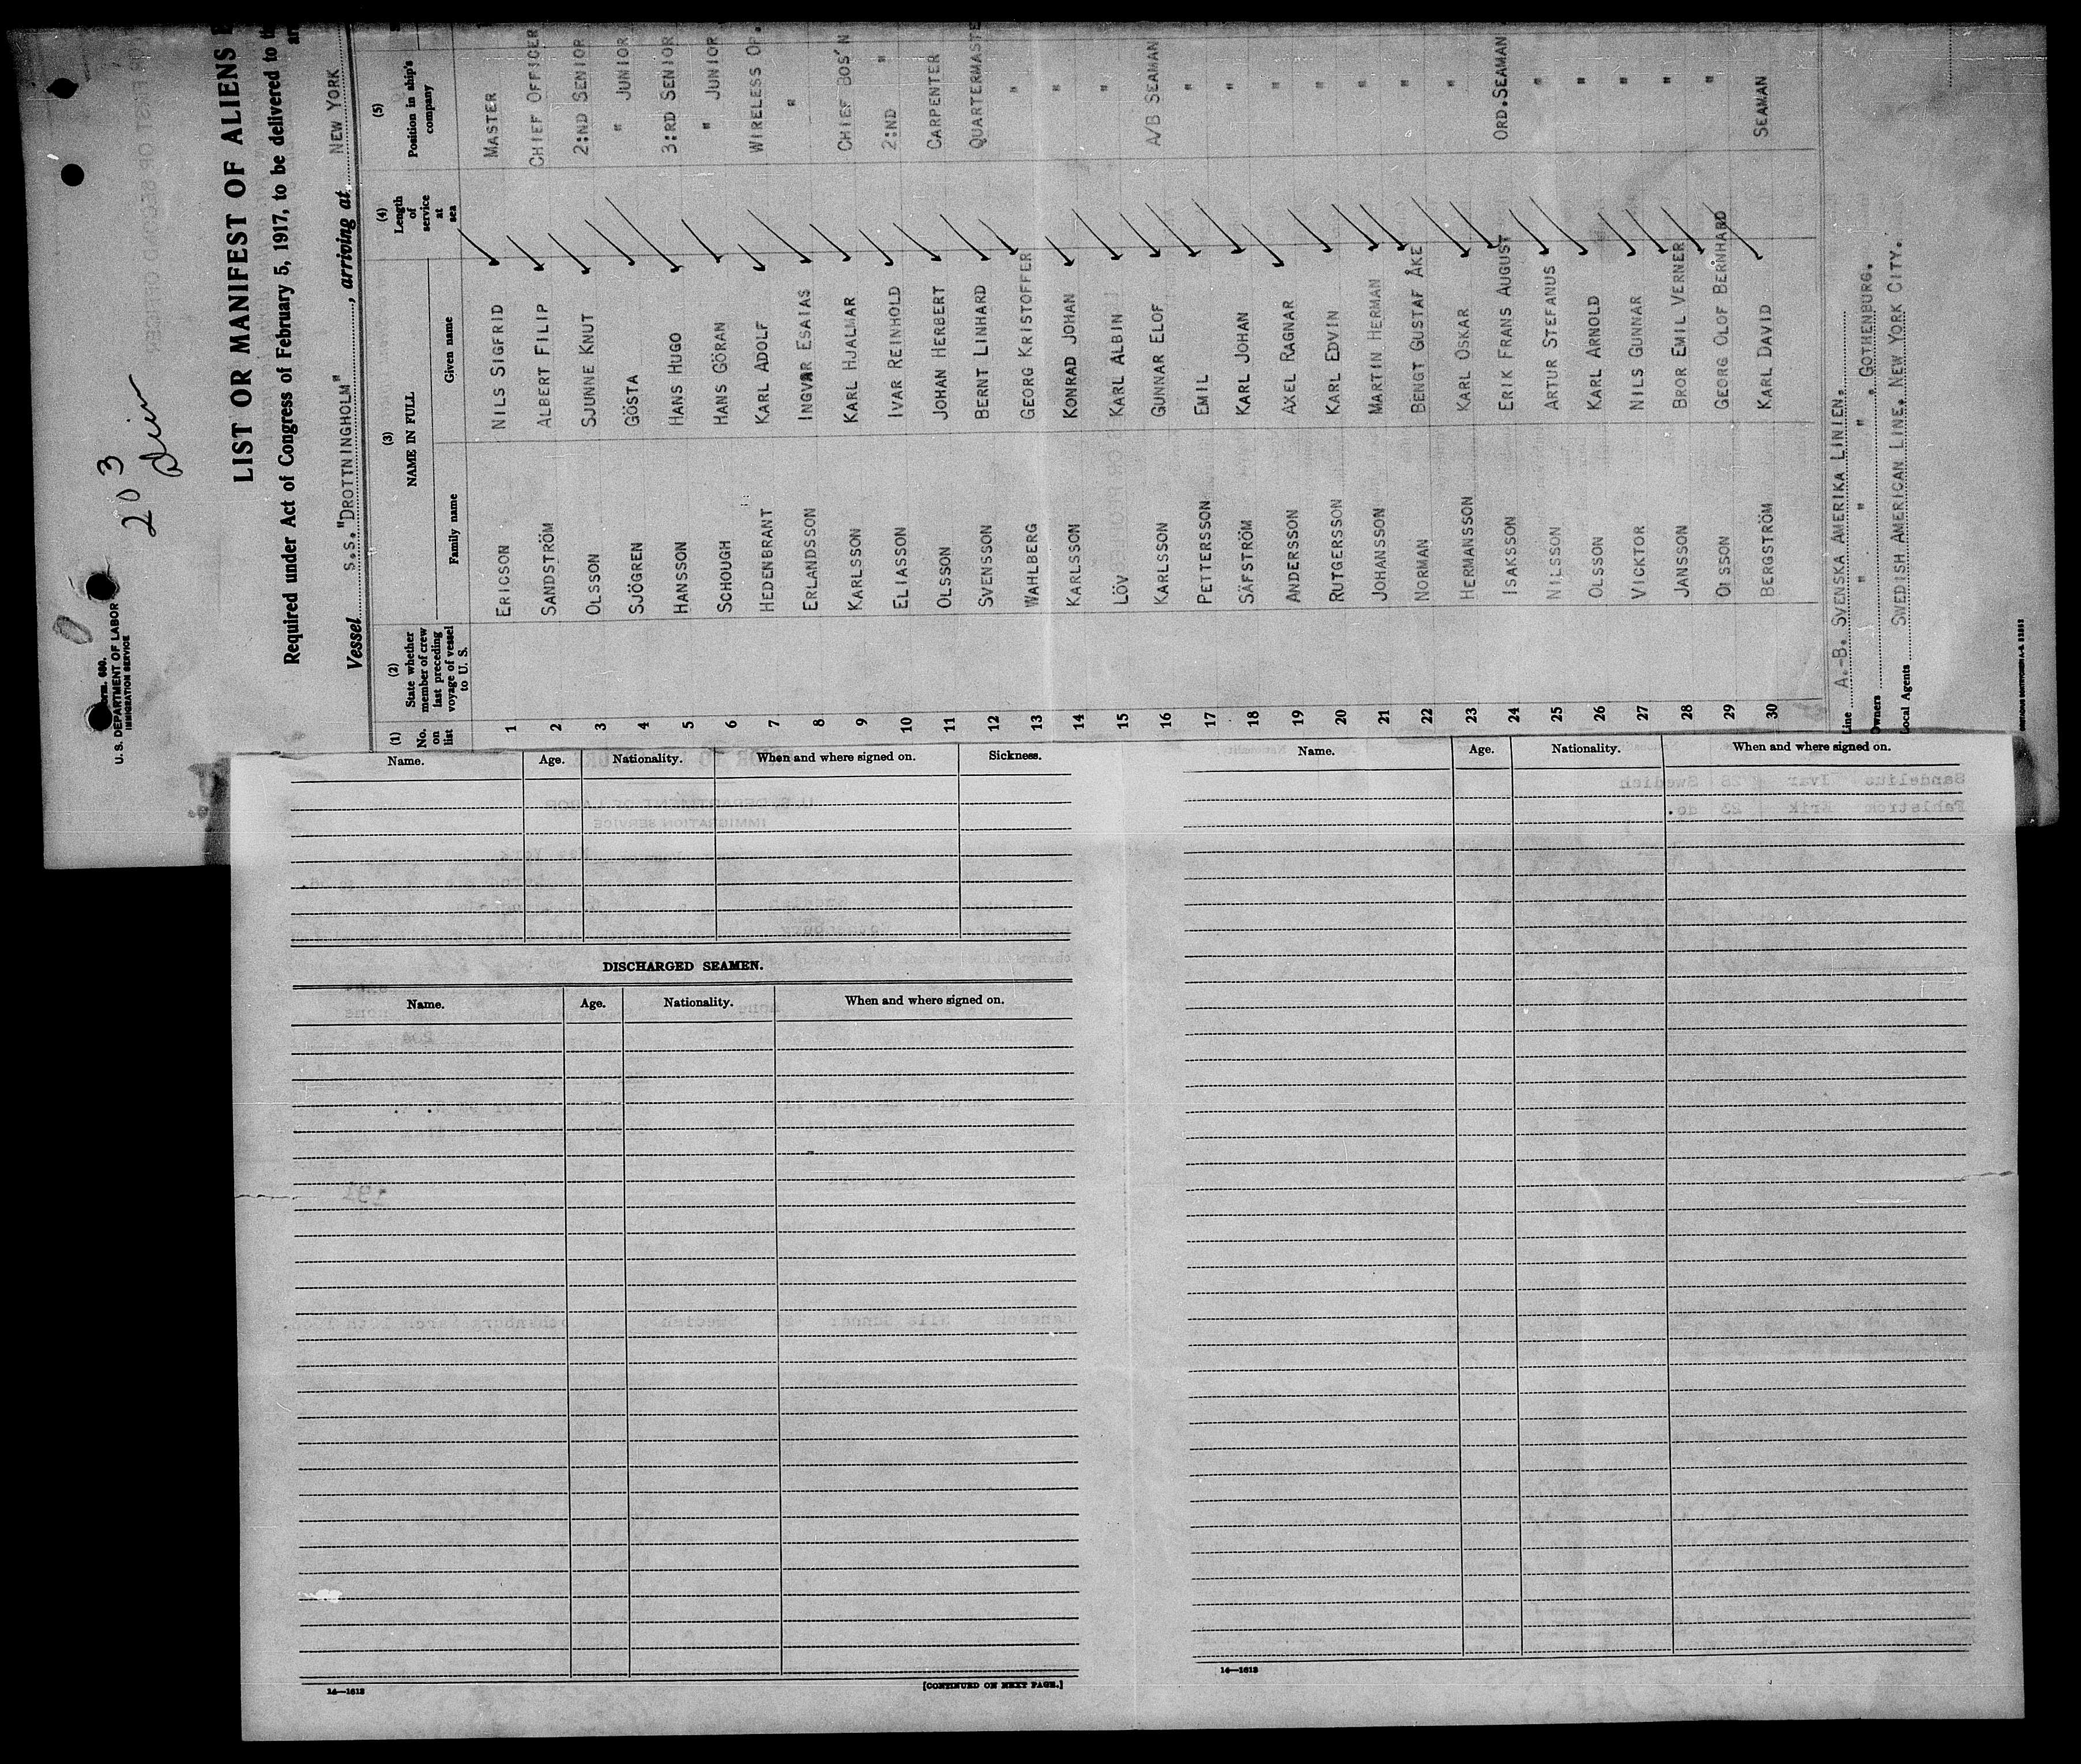 203
Form. 680.
U. S. DEPARTMENT OF LABOR
IMMIGRATION SERVICE
LIST OR MANIFEST OF ALIENS
Required under Act of Congress of February 5, 1917, to be delivered to
Vessel S.S. "DROTTNINGHOLM", arriving at NEW YORK
(1) No. on list (2) State whether member of crew last preceding voyage of vessel to U. S. (3) NAME IN FULL Family name Given name (4) Length of service at sea (5) Position in ship's company
1 ERICSON NILS SIGFRID MASTER
2 SANDSTRÖM ALBERT FILIP CHIEF OFFICER
3 OLSSON SJUNNE KNUT 2:ND SENIOR
4 SJÖGREN GÖSTA " JUNIOR
5 HANSSON HANS HUGO 3:RD SENIOR
6 SCHOUGH HANS GÖRAN " JUNIOR
7 HEDENBRANT KARL ADOLF WIRELESS OP.
8 ERLANDSSON INGVAR ESAIAS "
9 KARLSSON KARL HJALMAR CHIEF BOS'N
10 ELIASSON IVAR REINHOLD 2:ND "
11 OLSSON JOHAN HERBERT CARPENTER
12 SVENSSON BERNT LINHARD QUARTERMASTE
13 WAHLBERG GEORG KRISTOFFER "
14 KARLSSON KONRAD JOHAN "
15 LÖV KARL ALBIN "
16 KARLSSON GUNNAR ELOF A/B SEAMAN
17 PETTERSSON EMIL "
18 SÄFSTRÖM KARL JOHAN "
19 ANDERSSON AXEL RAGNAR "
20 RUTGERSSON KARL EDVIN "
21 JOHANSSON MARTIN HERMAN "
22 NORMAN BENGT GUSTAF ÅKE "
23 HERMANSSON KARL OSKAR "
24 ISAKSSON ERIK FRANS AUGUST ORD.SEAMAN
25 NILSSON ARTUR STEFANUS "
26 OLSSON KARL ARNOLD "
27 VICKTOR NILS GUNNAR "
28 JANSSON BROR EMIL VERNER "
29 OLSSON GEORG OLOF BERNHARD "
30 BERGSTRÖM KARL DAVID SEAMAN
Line A.-B. SVENSKA AMERIKA LINIEN.
Owners " " " . GOTHENBURG.
Local Agents SWEDISH AMERICAN LINE. NEW YORK CITY.
Name. Age. Nationality. When and where signed on. Sickness.
DISCHARGED SEAMEN.
Name. Age. Nationality. When and where signed on.
14—1613
[CONTINUED ON NEXT PAGE.]
Name. Age. Nationality. When and where signed on.
14—1613